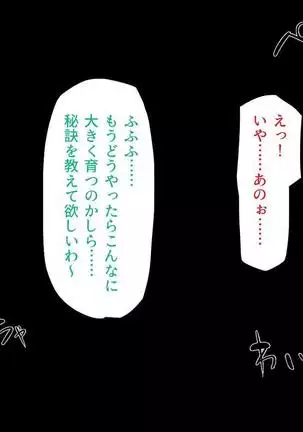 えっ！
いや……あのぉ……
ふふふ……
もうどうやったらこんなに
大きく育つのかしら……
秘訣を教えて欲しいわ〜
わい
ちゃ